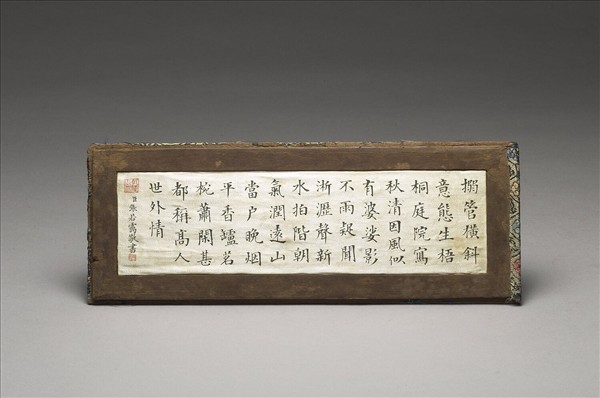 搦管橫斜
意態生梧
桐庭院寫
秋清因風似
有婆娑影
不雨疑聞
淅瀝聲新
水拍階朝
氣潤遠山
當户晚烟
平香鑪茗
椀蕭閑甚
都稱高人
世外情
臣張若靄敬書